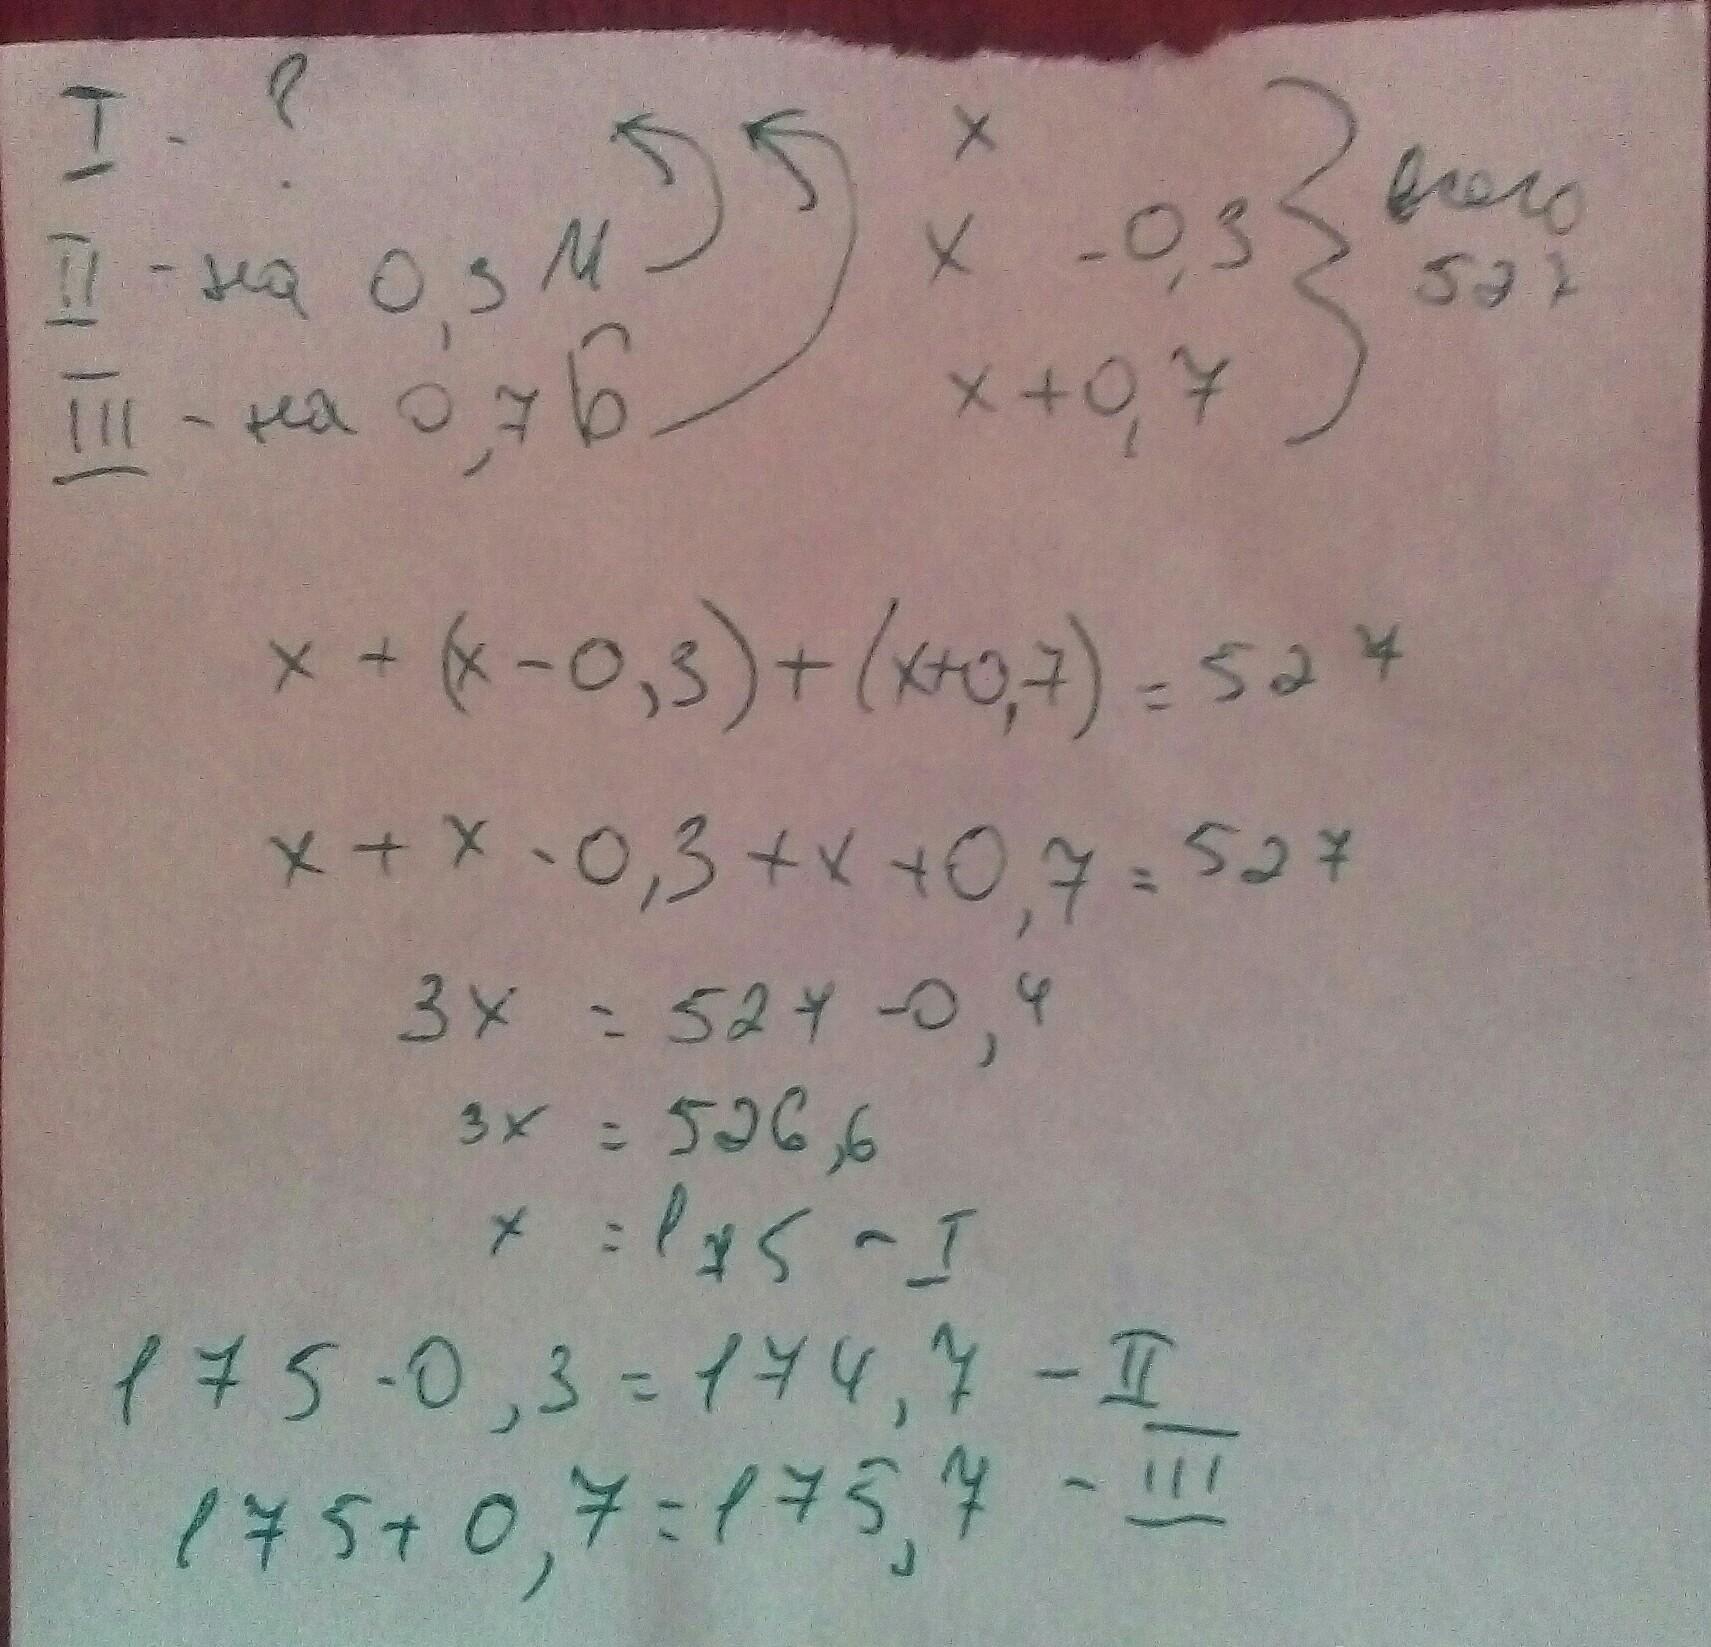 I - ? x
II - на 0,3 М x - 0,3 всего
527
III - на 0,7 б x + 0,7
x + (x - 0,3) + (x+0,7) = 527
x + x - 0,3 + x + 0,7 = 527
3x = 527 - 0,4
3x = 526,6
x = 175 - I
175 - 0,3 = 174,7 - II
175 + 0,7 = 175,7 - III